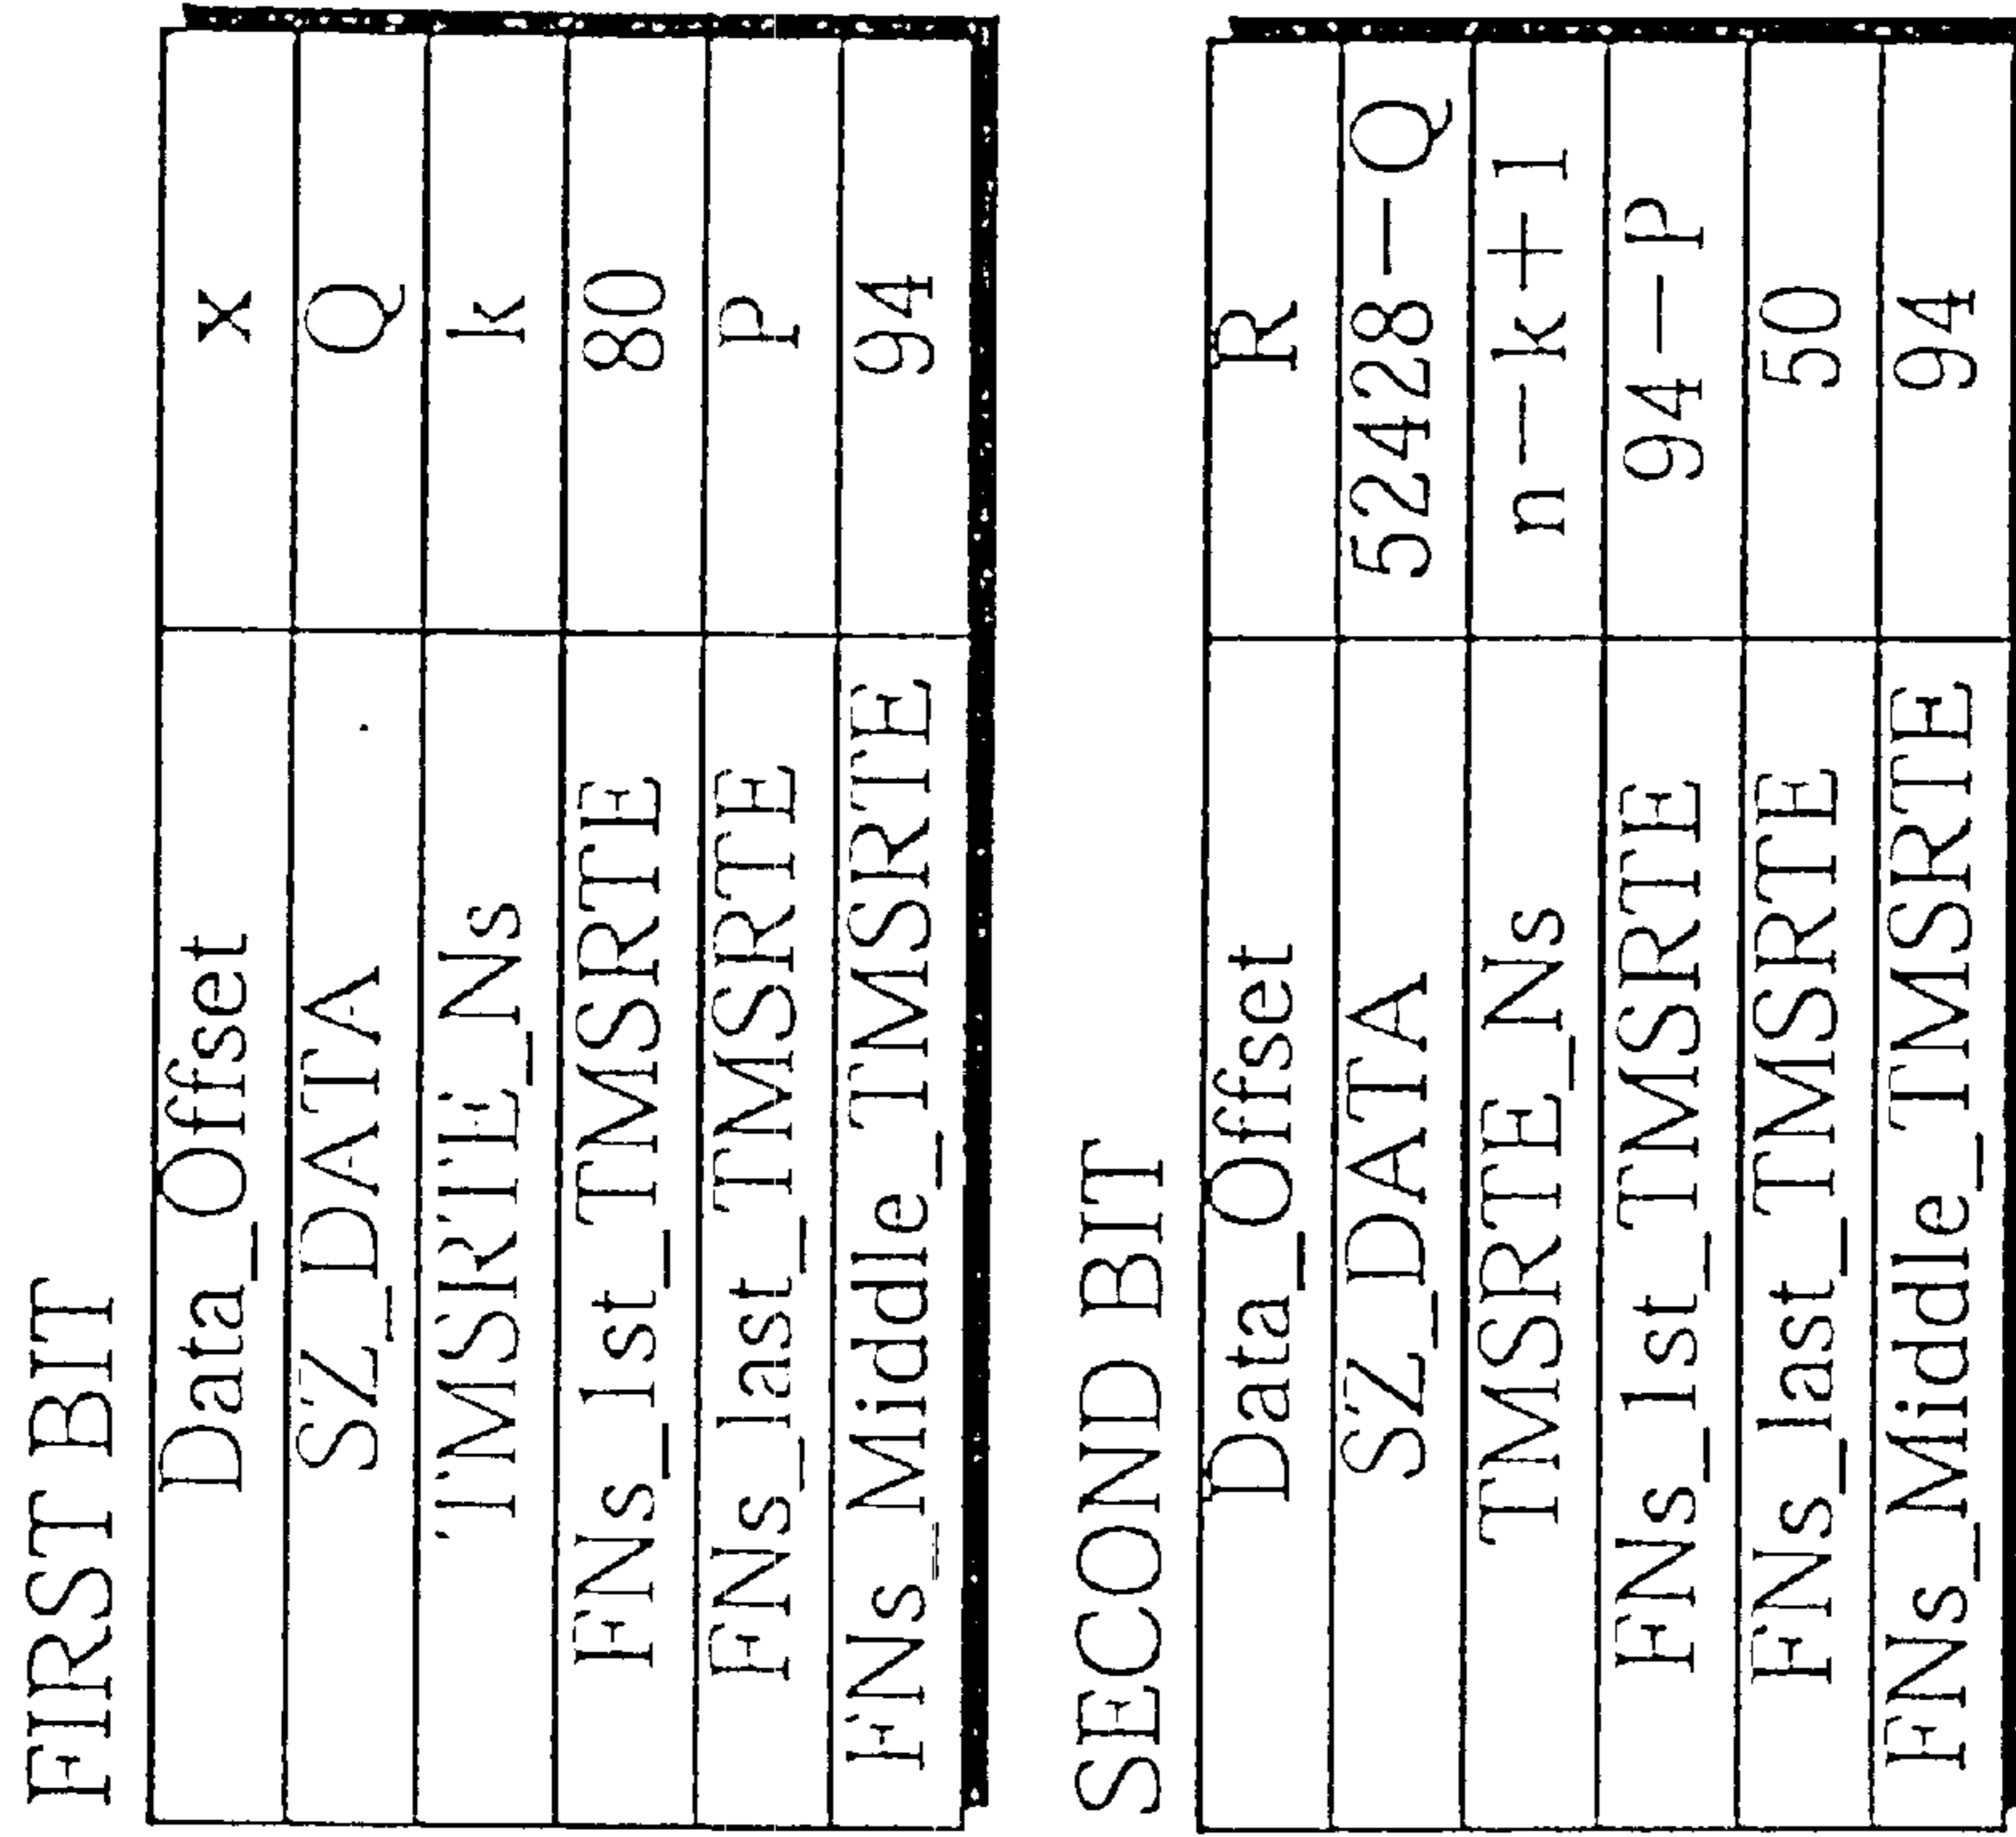 FIRST BIT
Data_Offset x
SZ_DATA Q
TMSRTE_Ns k
FNs_1st_TMSRTE 80
FNs_last_TMSRTE P
FNs_Middle_TMSRTE 94
SECOND BIT
Data_Offset R
SZ_DATA 52428-Q
TMSRTE_Ns n-k+1
FNs_1st_TMSRTE 94-P
FNs_last_TMSRTE 50
FNs_Middle_TMSRTE 94